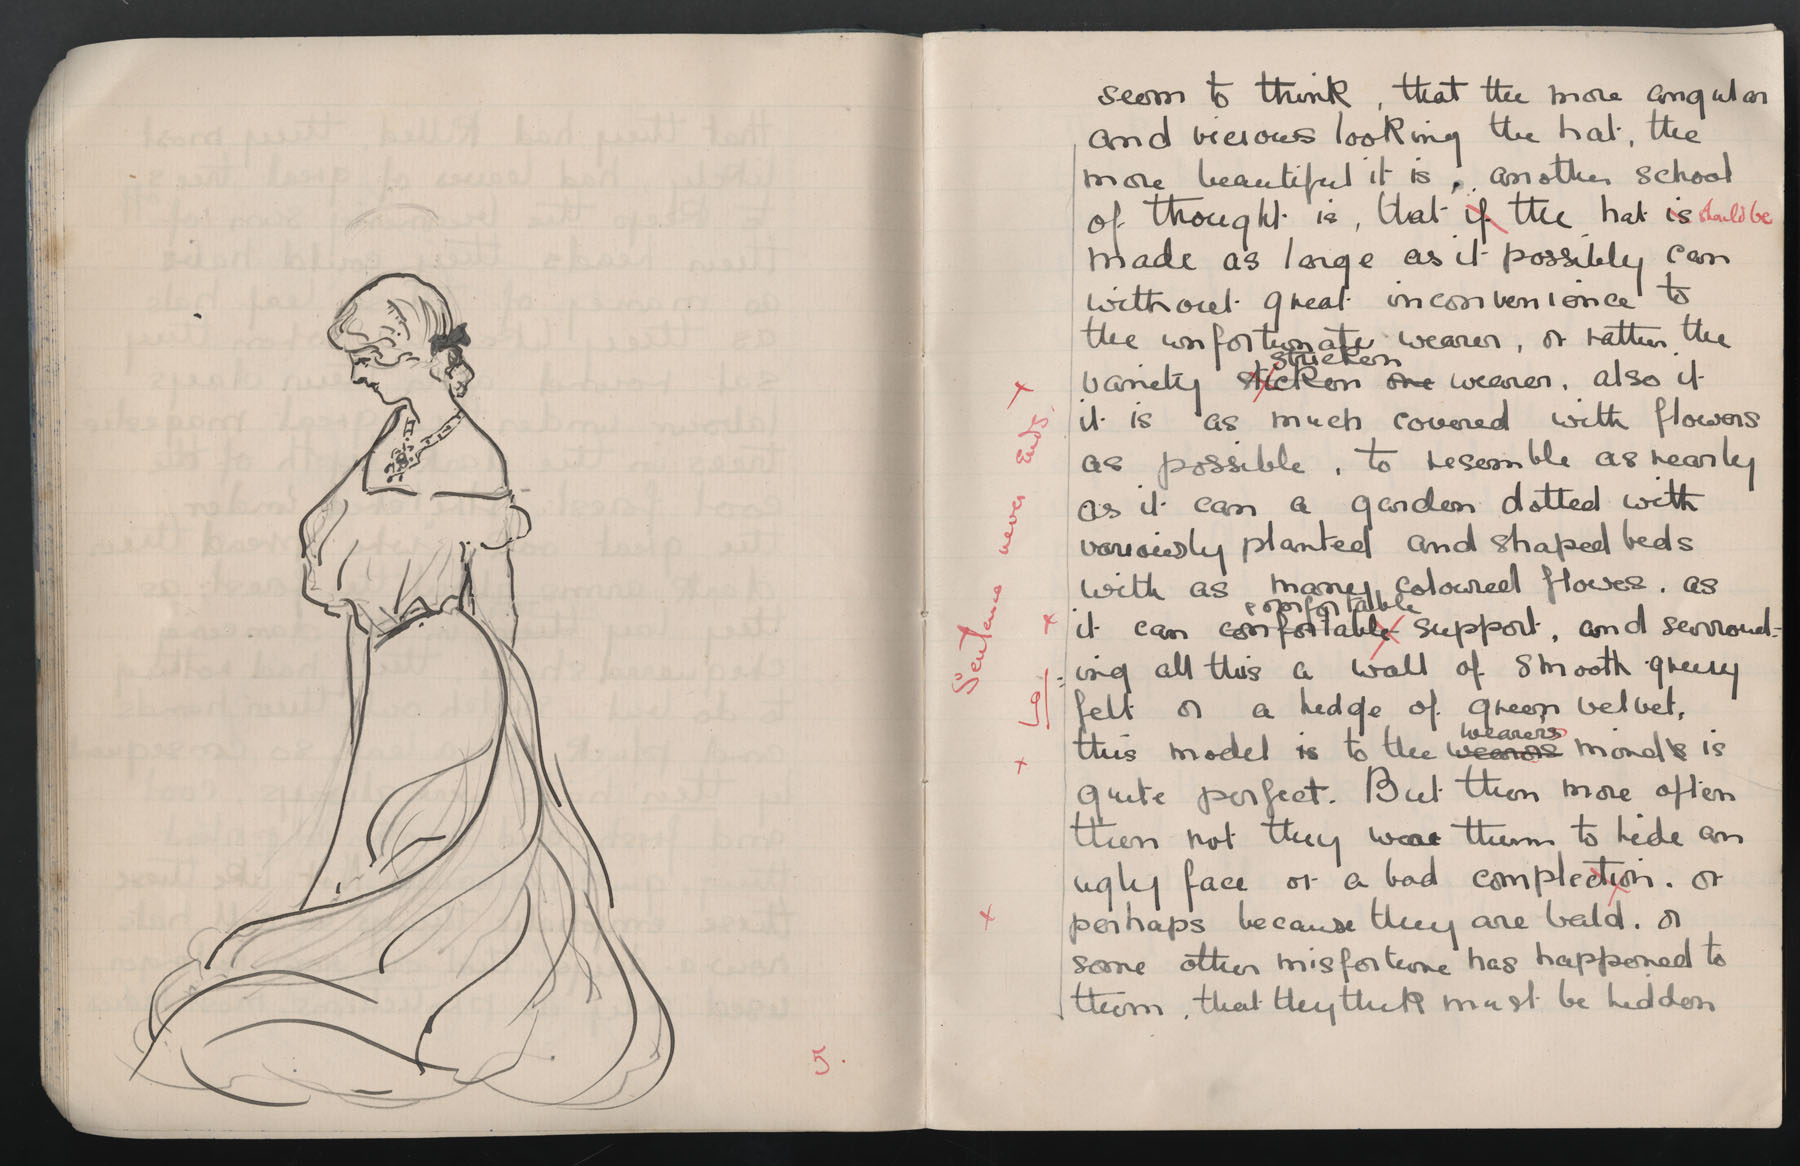 5.
seem to think, that the more angular
and vicious looking the hat, the
more beautiful it is, another school
of thought is, that if the hat is should be
made as large as it possibly can
without great inconvenience to
the unfortunate wearer, or rather the
stricken
vanity sticken one wearer. also it
it is as much covered with flowers
as possible, to resemble as nearly
as it can a garden dotted with
variously planted and shaped beds
with as many coloured flowes. as
comfortable
it can confortable support, and surround-
ing all this a wall of smooth greeny
felt or a hedge of green velvet,
wearers
this model is to the wearors mind's is
quite perfect. But then more often
then not they wear them to hide an
ugly face or a bad complection. or
perhaps because they are bald. or
some other misfortune has happened to
them, that they think must be hidden
Sentence never ends.